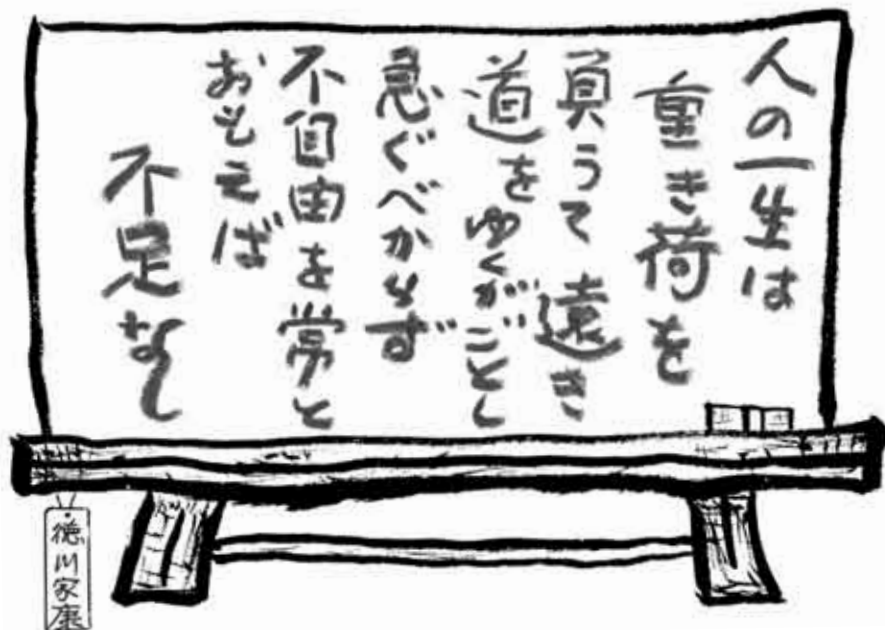 人の一生は
重き荷を
負うて遠き
道をゆくがごとし
急ぐべからず
不自由を常と
おもえば
不足なし
徳川家康